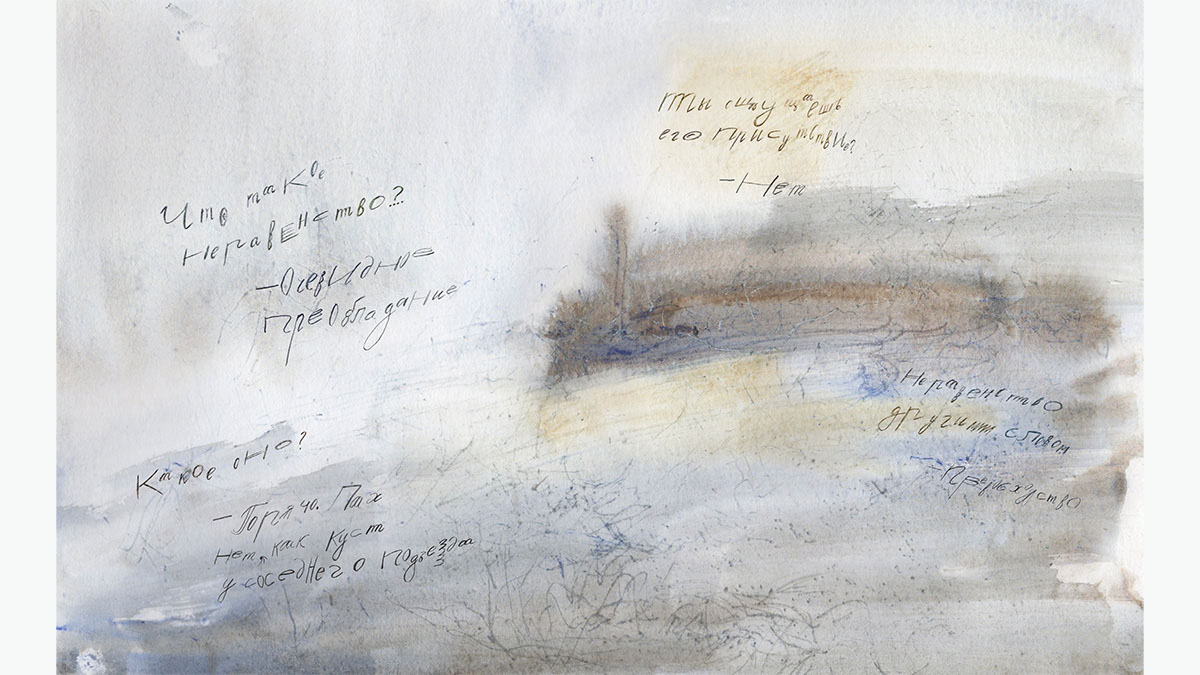 Что такое
неравенство?
– Очевидное
преобладание
Ты
его присутствие?
– Нет
Какое оно?
– Горячо. Пах
нет, как куст
у соседнего подъезда
Неравенство
другим словом
– Превосходство